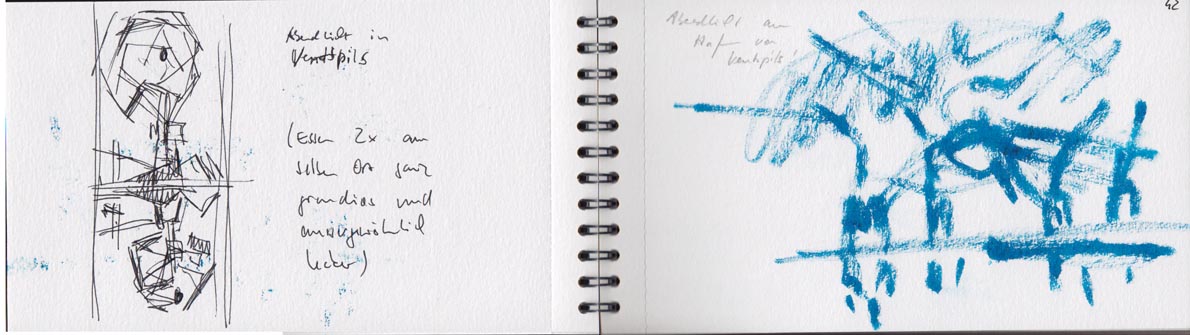 Abendlicht in
Ventspils
(Essen 2x am
selben Ort ganz
grandios und
aussergewöhnlich
lecker)
Abendlicht am
Haf von
Ventspils!
42